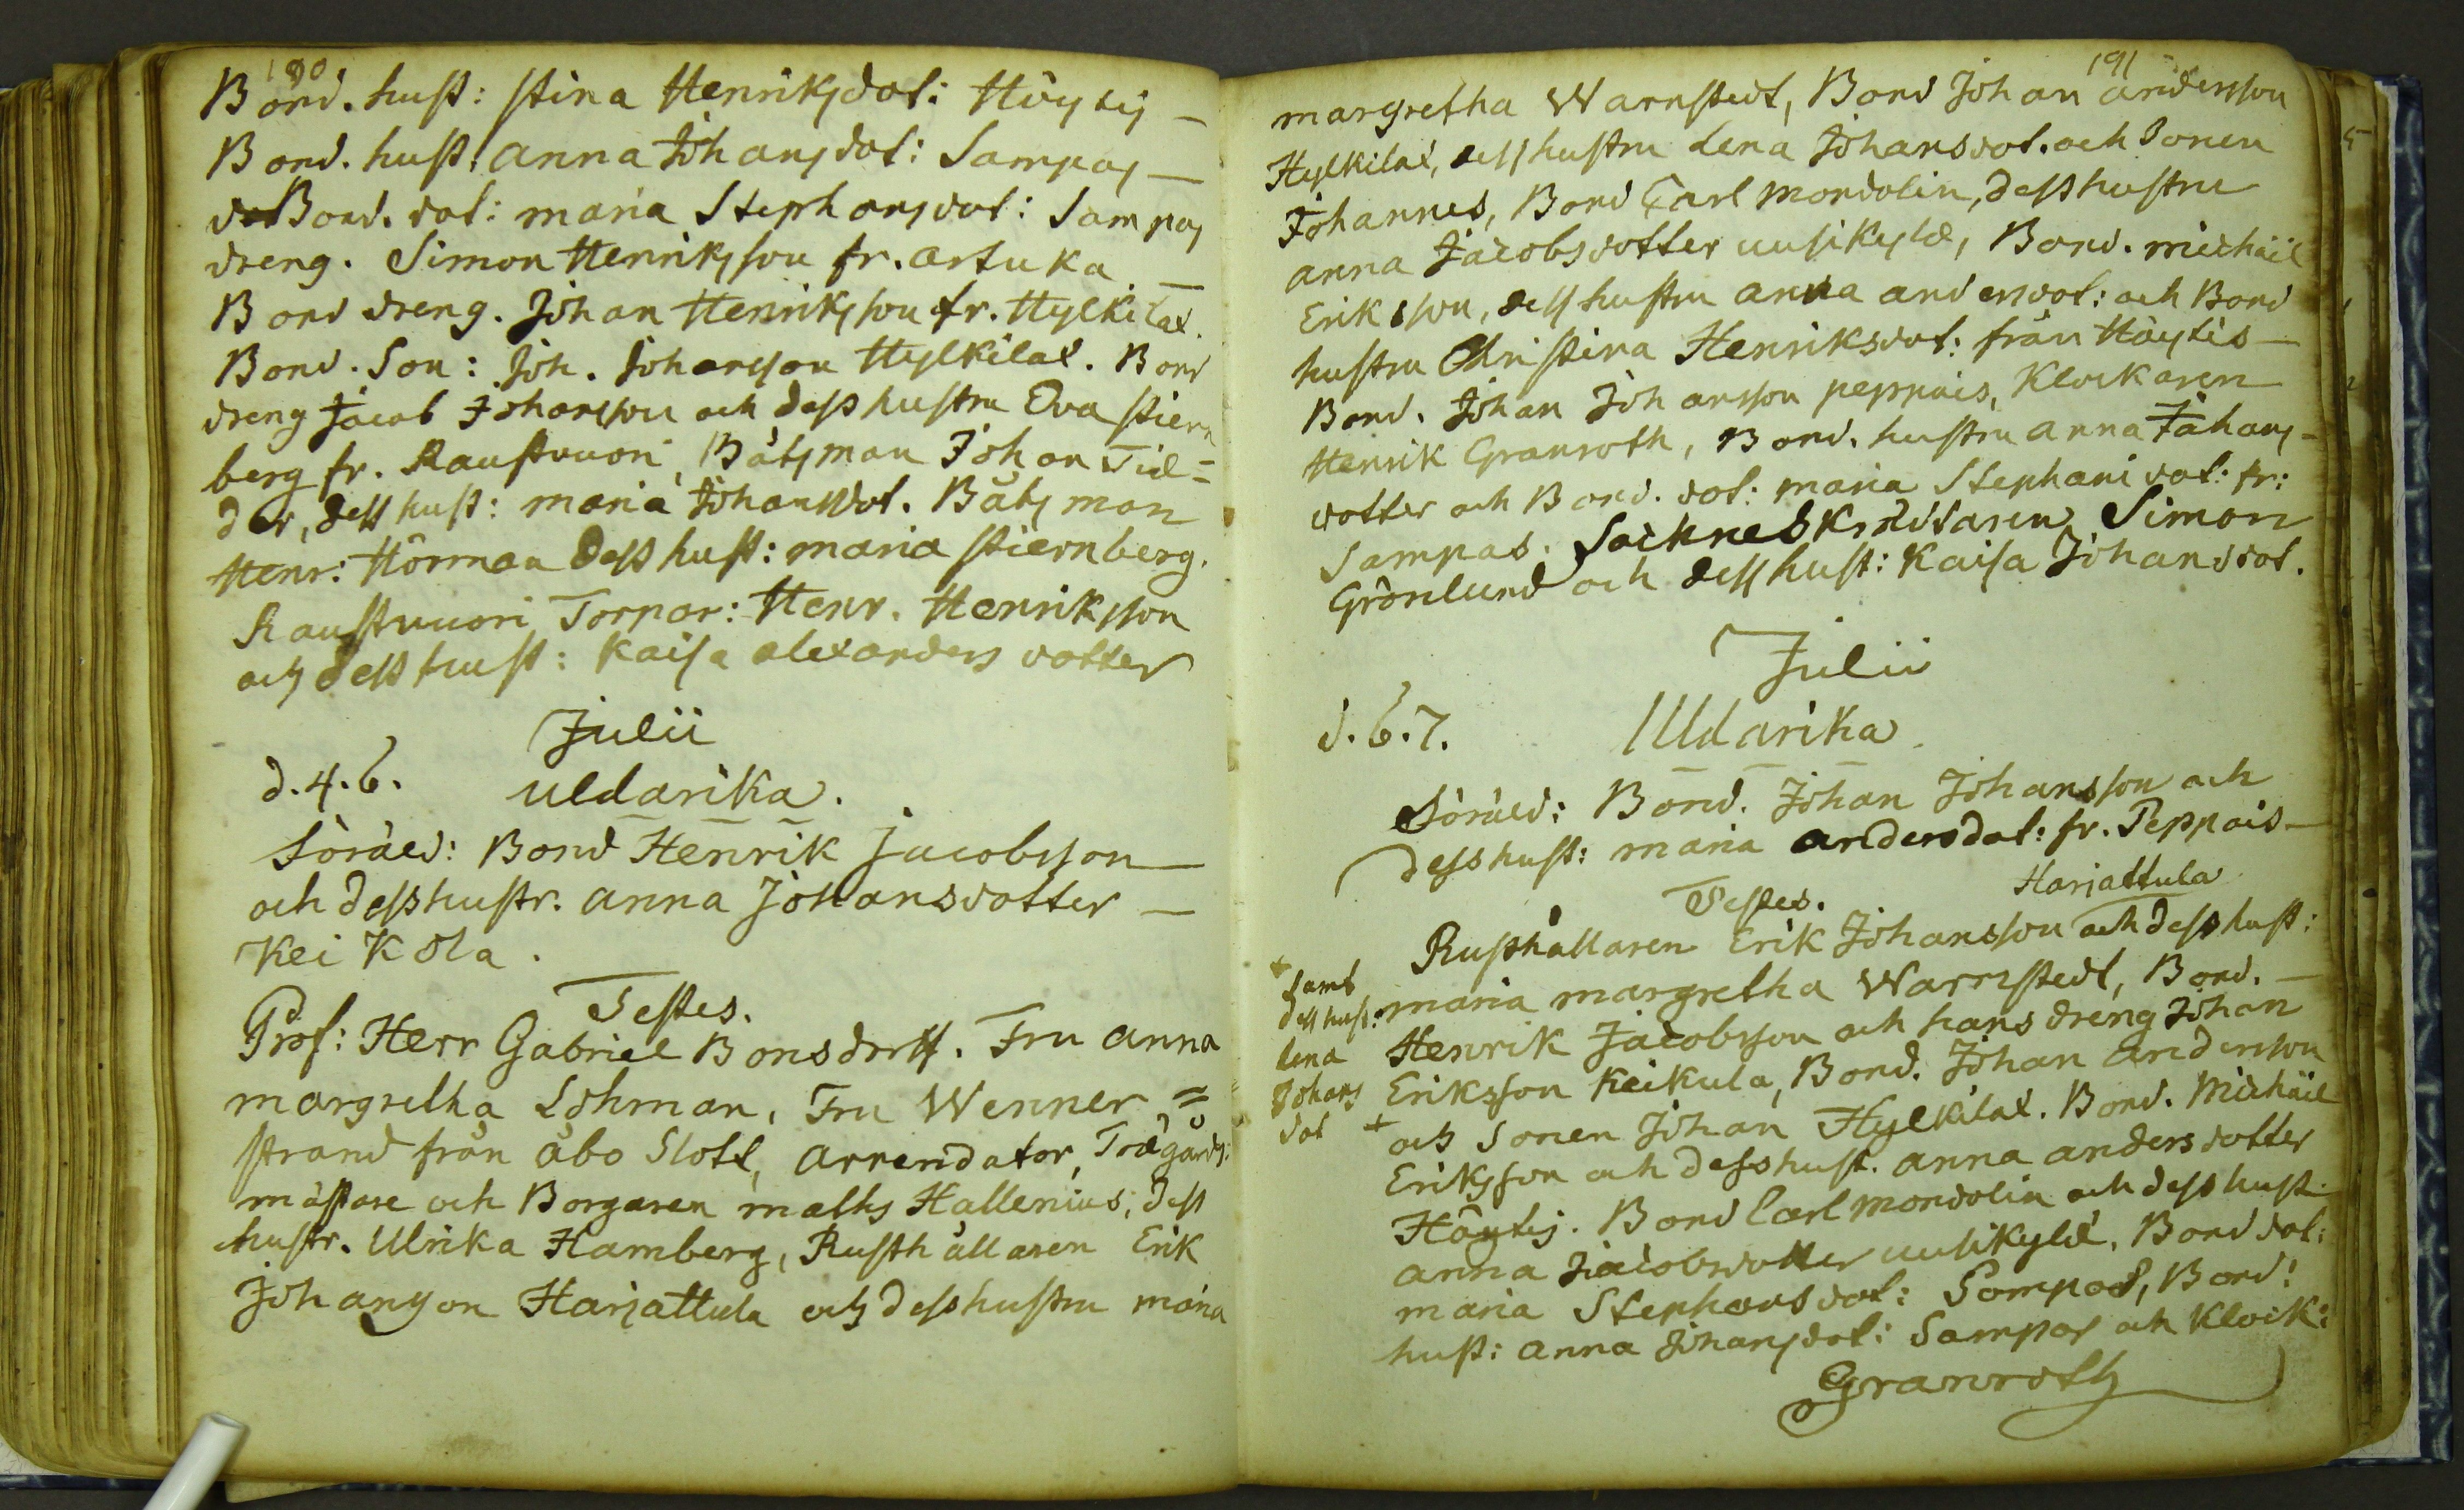 190
Bond. hust: Stina Henriksdot: Höytis
Bond. hust: Anna Johansdot: Sampas
Bond. dot: maria Stephansdot: Sampas
dreng. Simon Henriksson fr. Artuka
Bond dreng. Johan Henriksson fr. Hylkilax.
Bond. Son: Joh. Johansson Hylkilax. Bond
dreng Jacob Johansson och dess hustru Eva Stiern
berg fr. Raustvuori, Båtsman Johan Tid=
der, dess hust: maria Johansdot. Båtsman
Henr: Hörman dess hust: maria Stiernberg.
Raustvuori Torpar: Henr. Henriksson
och dess hust: Kaisa Alexanders dotter
Julii
d. 4. 6. Uldarika.
Föräld: Bond Henrik Jacobsson
och dess hustr. Anna Johansdotter
Keikola.
Testes.
Prof: Herr Gabriel Bonsdorff. Fru Anna
margretha Lohman, Fru Wenner=
strand från Åbo Slott, Arrendator, Trägårds:
mästare och Borgaren matths Hallenius, dess
hustr. Ulrika Hamberg, Rusthållaren Erik
Johansson Harjattula och dess hustru maria
191
margretha Warnstedt, Bond Johan Andersson
Hylkilax, dess hustru Lena Johansdot. och Sonen
Johannes, Bond Carl Mondolin, dess hustru
Anna Jacobsdotter uusikylä, Bond. michäil
Eriksson, dess hustru Anna Andersdot: och Bond
hustru Christina Henriksdot: från Höytis
Bond. Johan Johansson peppais, Klockaren
Henrik Granroth, Bond. hustru Anna Johans-
dotter och Bond. dot: maria Stephans dot: fr:
Sampas. Sockneskräddaren Simon
Grönlund och dess hust: Kaisa Johansdot.
Julii
d. 6. 7. Uldarika.
Föräld: Bond. Johan Johansson och
dess hust: maria Andersdot: fr. Peppais
Testes. Harjattula
Rusthållaren Erik Johansson och dess hust:
maria margretha Warnstedt, Bond.
Henrik Jacobsson och hans dreng Johan
Eriksson Keikula, Bond. Johan Andersson
+ och Sonen Johan Hylkilax. Bond. Michäil
+ samt
dess hust:
lena
Johans
dot
Eriksson och dess hust. Anna Anders dotter
Höytis. Bond Carl Mondolin och dess hust
Anna Jacobsdotter uusikylä. Bond dot:
maria Stephans dot: Sampas, Bond:
hust: Anna Johansdot: Sampas och Klock:
Granroth